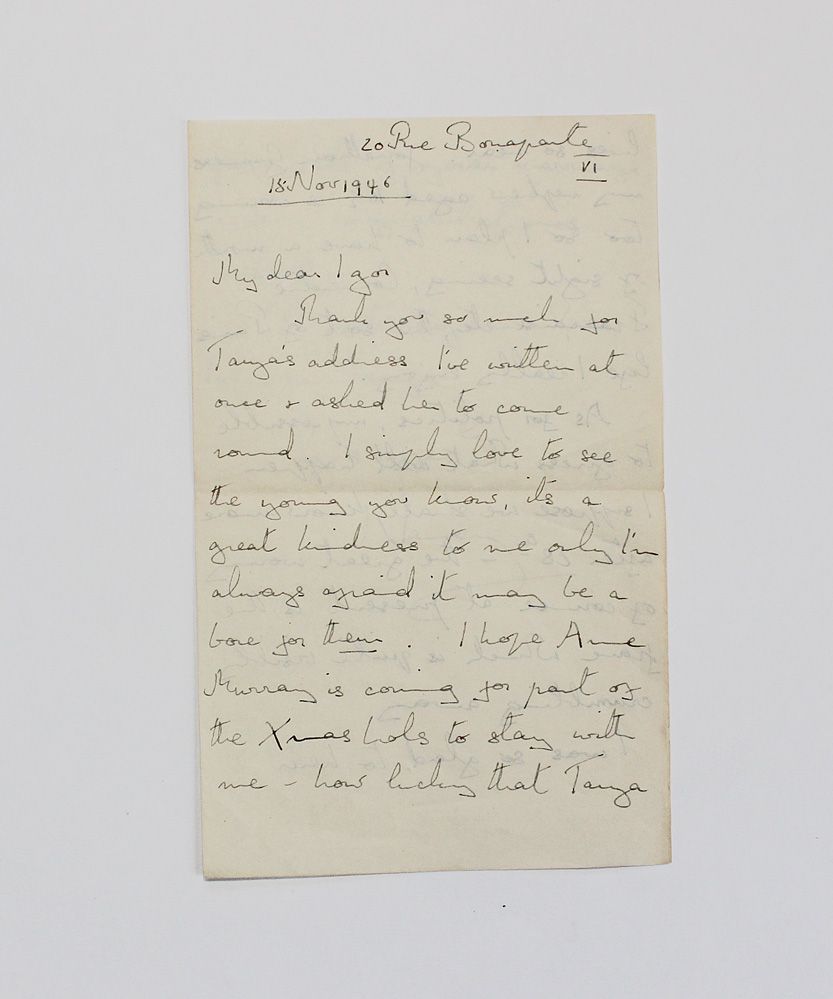 20 Rue Bonaparte
VI
15 Nov 1946
My dear Igor
Thank you so much for
Tanya's address. I've written at
once & asked her to come
round. I simply love to see
the young you know, its a
great kindness to me only I'm
always afraid it may be a
bore for them. I hope Anne
Murray is coming for part of
the Xmas hols to stay with
me - how lucky that Tanya